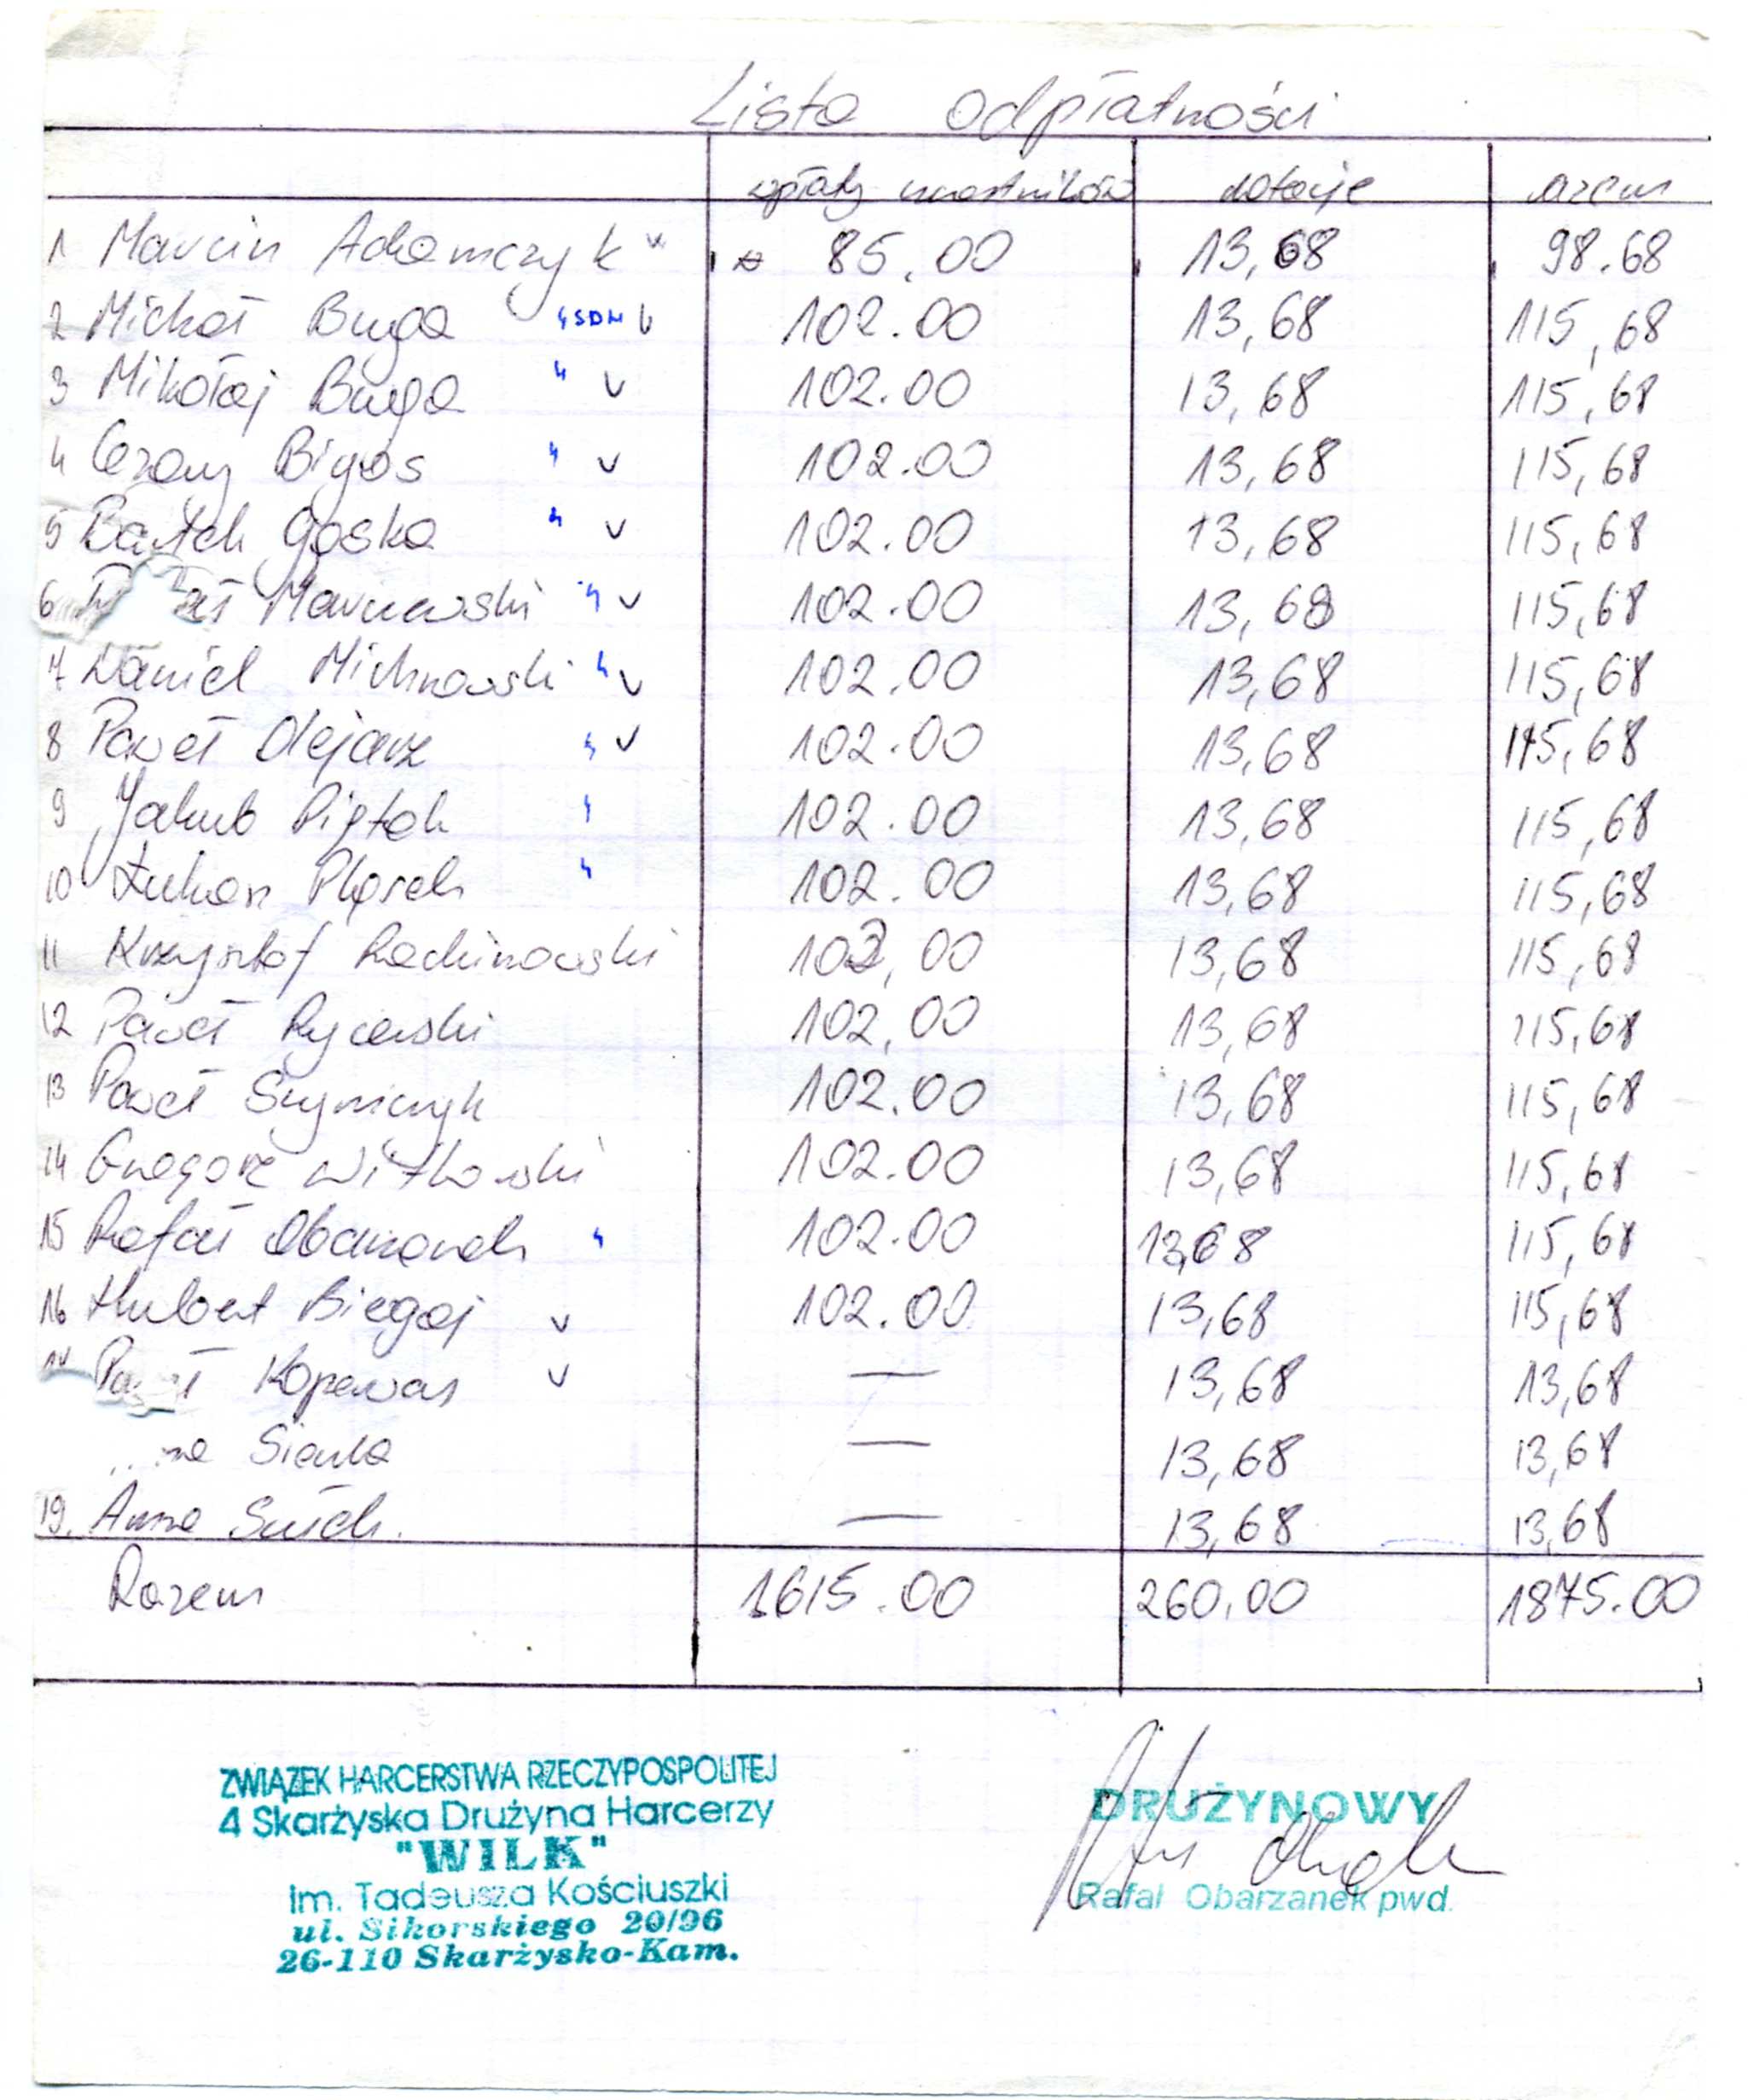 Lista odpłatności
wpłaty uczestników dotacje razem
1 Marcin Adamczyk v 85,00 13,68 98.68
2 Michał Buga 4SDH v 102.00 13,68 115,68
3 Mikołaj Buga " v 102.00 13,68 115,68
4 Cezary Bigos " v 102.00 13,68 115,68
5 Bartek Gąska " v 102.00 13,68 115,68
6 " v 102.00 13,68 115,68
7 Daniel Michnowski " v 102.00 13,68 115,68
8 Paweł Olejarz " v 102.00 13,68 115,68
9 Jakub Piętak " 102.00 13,68 115,68
10 Łukasz " 102.00 13,68 115,68
11 Krzysztof 102,00 13,68 115,68
12 Paweł Rycerski 102,00 13,68 115,68
13 Paweł Szymczyk 102.00 13,68 115,68
14 Grzegorz Witkowski 102.00 13,68 115,68
15 Rafał Obarzanek " 102.00 13,68 115,68
16 Hubert Biegaj v 102.00 13,68 115,68
17 Kopewas v — 13,68 13,68
— 13,68 13,68
19. Anna — 13,68 13,68
Razem 1615.00 260,00 1875.00
ZWIĄZEK HARCERSTWA RZECZYPOSPOLITEJ
4 Skarżyska Drużyna Harcerzy
"WILK"
im. Tadeusza Kościuszki
ul. Sikorskiego 20/96
26-110 Skarżysko-Kam.
DRUŻYNOWY
Rafał Obarzanek pwd.